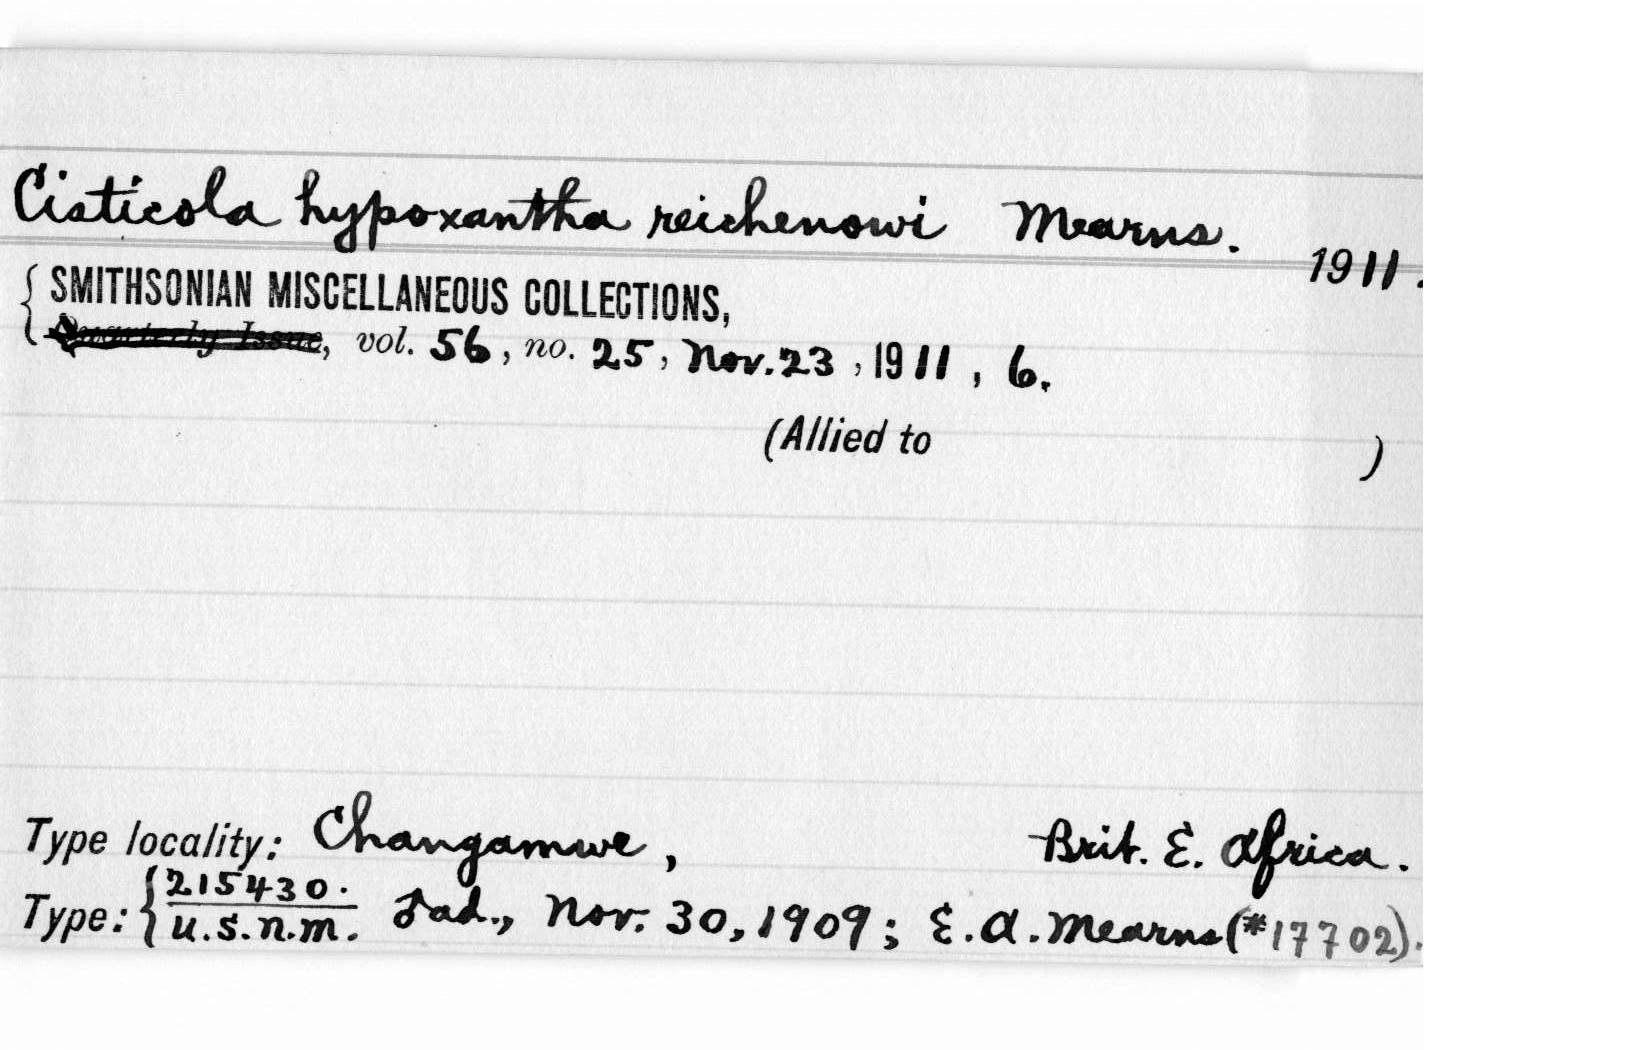 Cisticola hypoxantha reichenowi Mearns. 1911.
{ SMITHSONIAN MISCELLANEOUS COLLECTIONS,
Quarterly Issue, vol. 56, no. 25, Nov. 23, 1911, 6.
(Allied to )
Type locality: Changamwe, Brit. E. Africa.
215430.
Type: { U.S.N.M. ad., Nov. 30, 1909; E. A. Mearns (#17702).